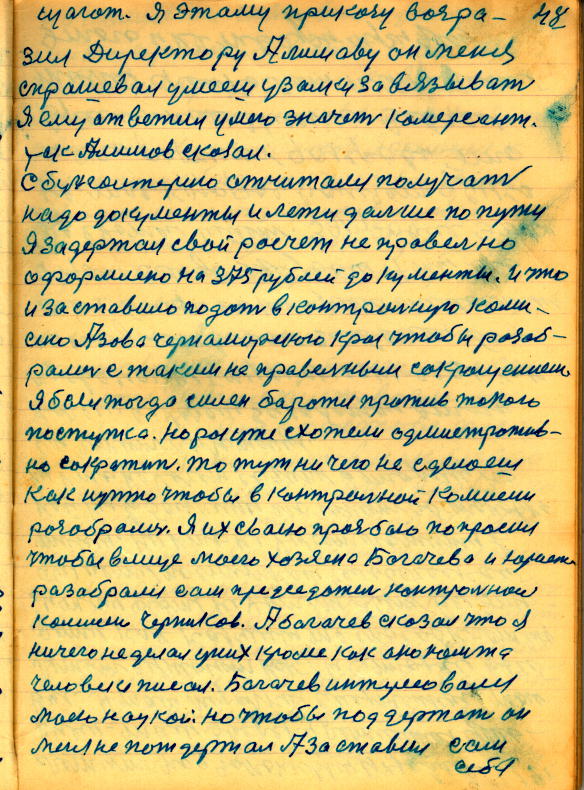 щагот. Я этаму прикозу возра- 48
зил Директору Алимаву он меня
спрашевал умееш узамки завязыват
Я ему ответил умею значет комерсант.
так Алимов сказал.
С бухгалтерию отчитали получать
надо документы илети дальше по пути
Я задержал свой росчет не правельно
оформлено на 375 рублей документы. И что
и заставило подат в контрольную коми-
сию Азова черноморского края чтобы розоб-
рались с таким не правельным сокрощением
Я был тогда силен бароти против токого
поступка. но раз уже схотели адмиетротив-
но сократит. то тут ничего не сделаеш
Как нутто чтобы в контрольной комисии
розобрались. Я их своею прозбою попросил
чтобы влице моего хозяена Богачева и юриста
разабрали сам председатель контрольной
комисии Черников. А богачев сказал что я
ничего не делал уних кроме как
человека писал. Богачев интересовался
моею наукой. но чтобы поддержат он
меня не потдержал Я заставил сам
себя